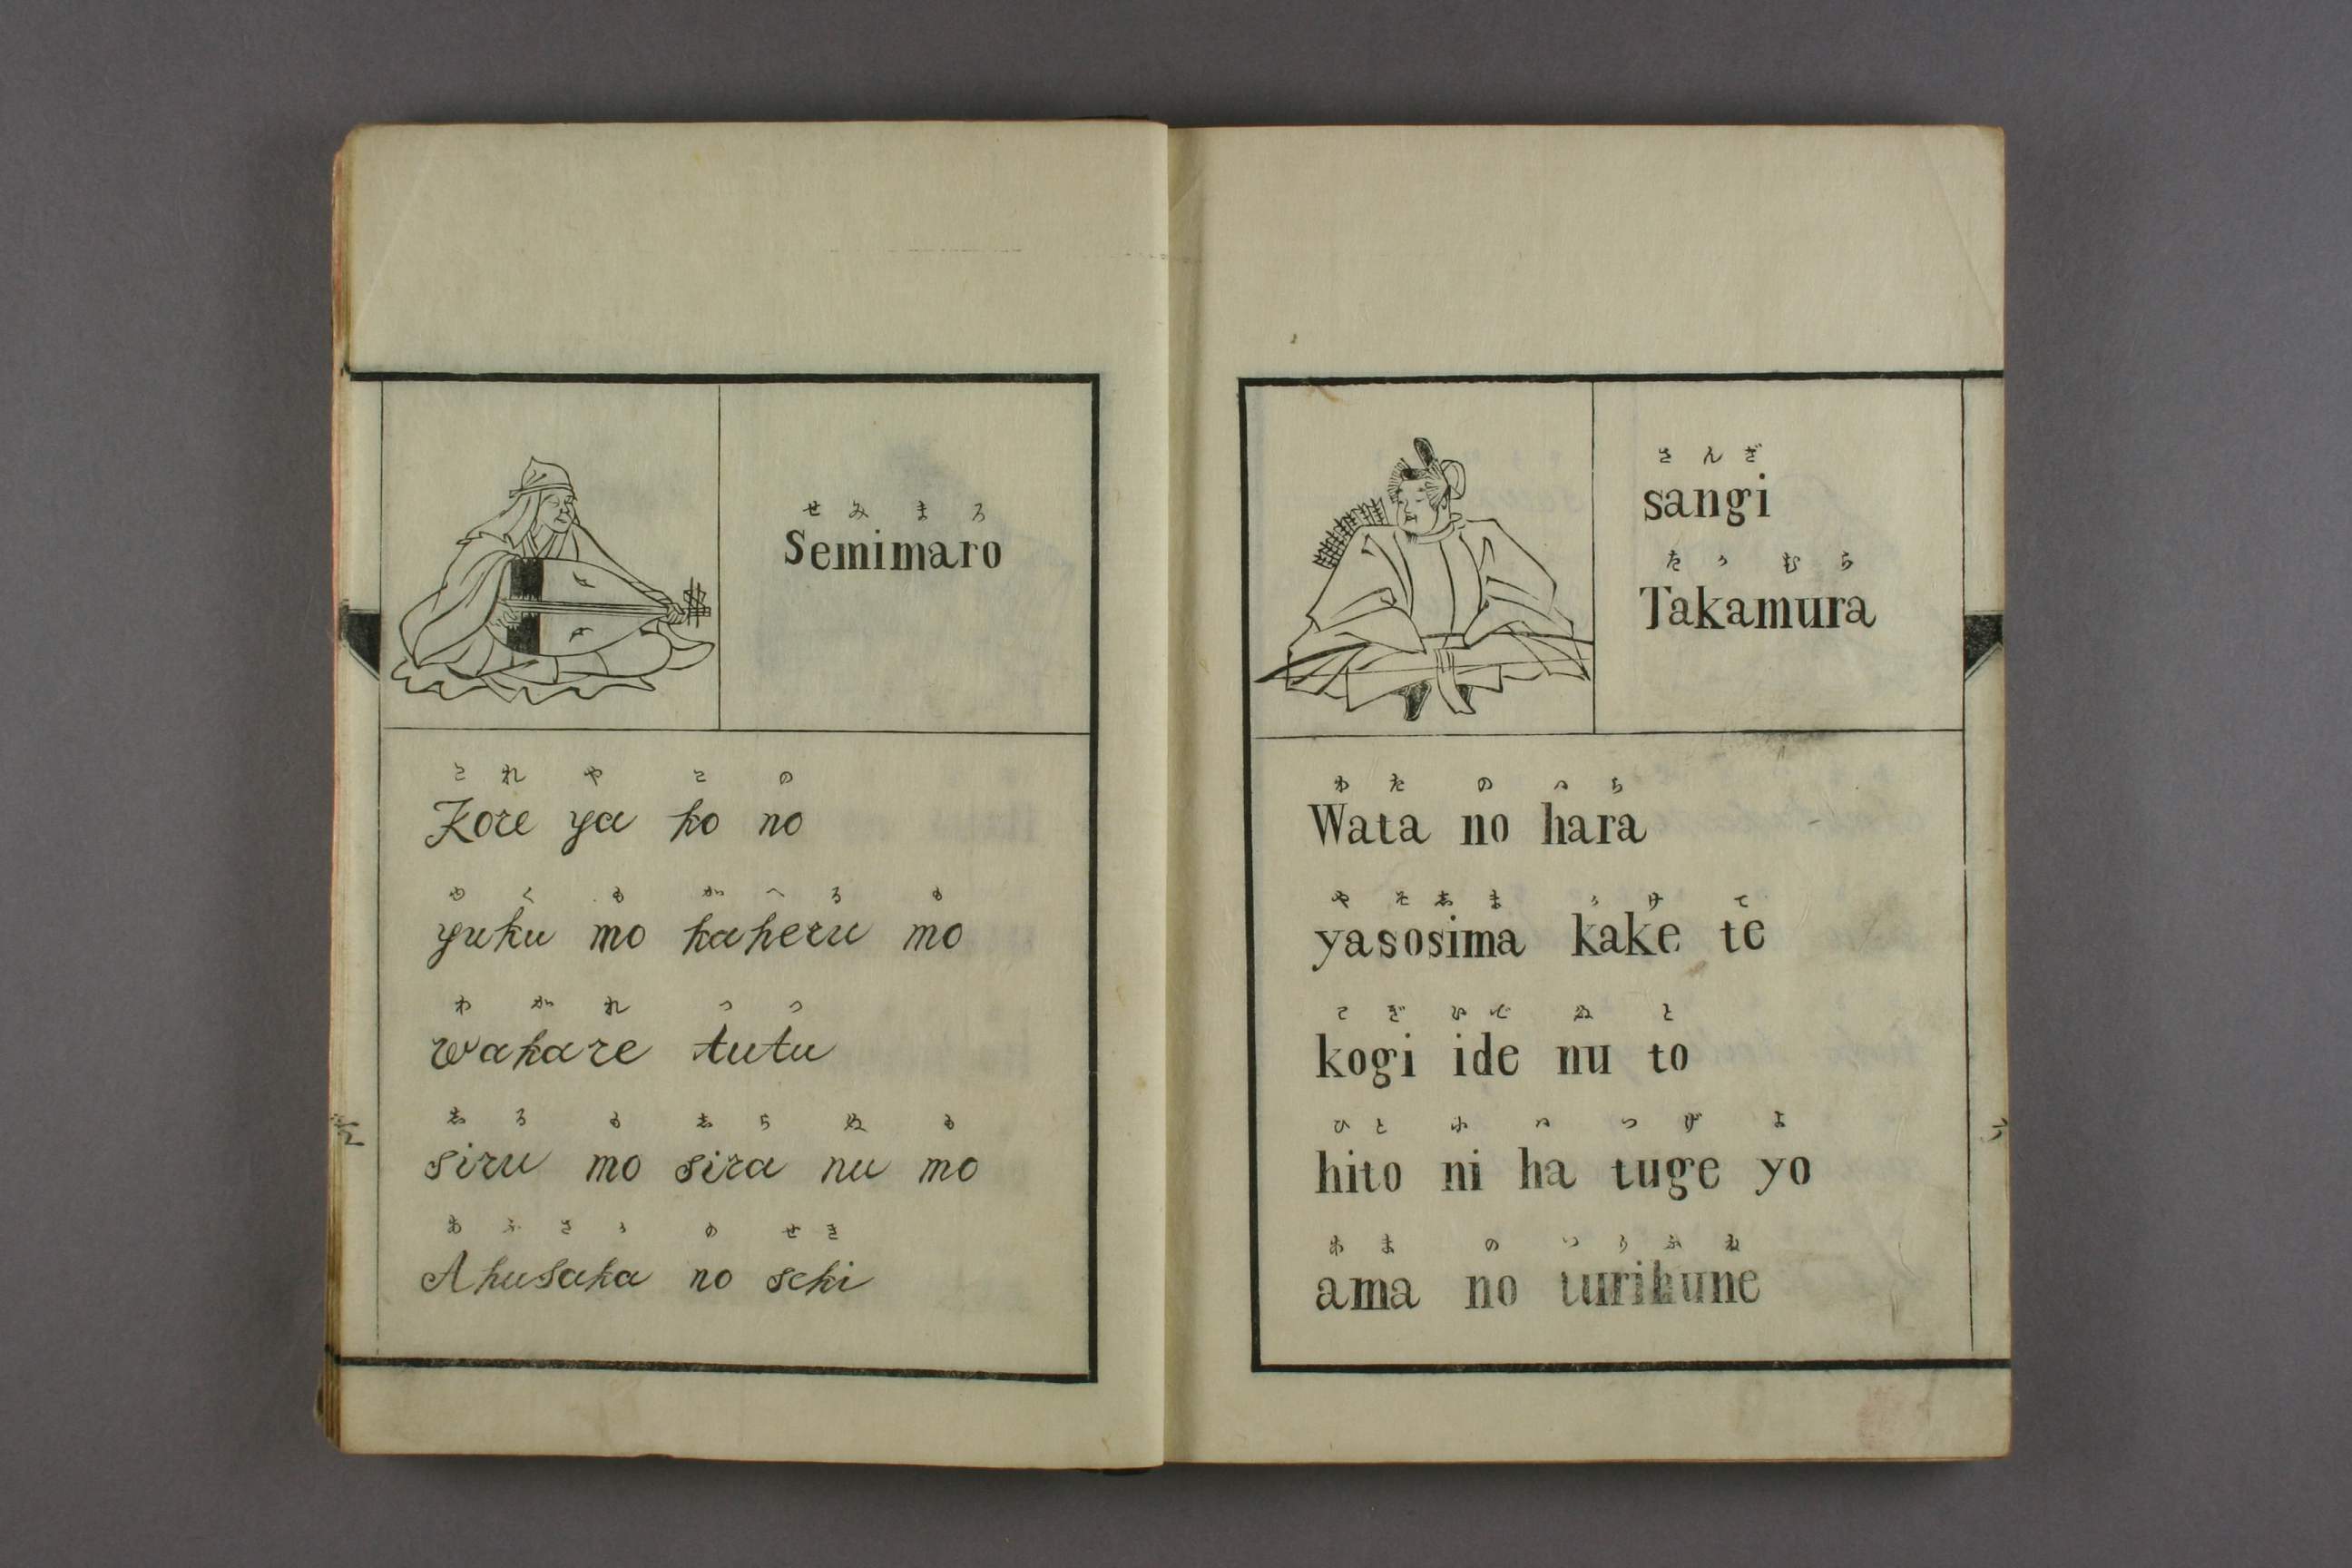 せみ まろ
Semimaro
これ や こ の
Kore ya ko no
ゆく も かへる も
yuku mo kaheru mo
わかれ つつ
wakare tutu
しる も しら ぬ も
siru mo sira nu mo
あふさか の せき
Ahusaka no seki
さんぎ
sangi
たかむら
Takamura
わた の はら
Wata no hara
やそしま かけ て
yasosima kake te
こぎ いで ぬ と
kogi ide nu to
ひと に は つげ よ
hito ni ha tuge yo
あま の つりふね
ama no turihune